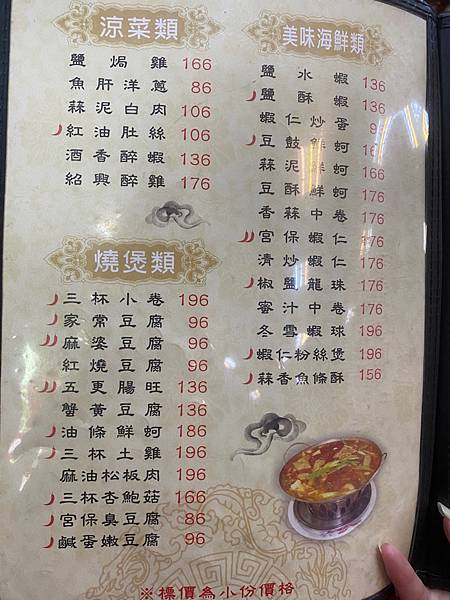 涼菜類
鹽焗雞 166
魚肝洋蔥 86
蒜泥白肉 106
紅油肚絲 106
酒香醉蝦 136
紹興醉雞 176
燒煲類
三杯小卷 196
家常豆腐 96
麻婆豆腐 96
紅燒豆腐 96
五更腸旺 136
蟹黃豆腐 136
油條鮮蚵 186
三杯土雞 196
麻油松板肉 196
三杯杏鮑菇 166
宮保臭豆腐 86
鹹蛋嫩豆腐 96
美味海鮮類
鹽水蝦 136
鹽酥蝦 136
蝦仁炒蛋
豆鼓鮮蚵
蒜泥鮮蚵 166
豆酥鮮蚵 176
香蒜中卷 176
宮保蝦仁 176
清炒蝦仁 176
椒鹽龍珠 176
蜜汁中卷 176
冬雪蝦球 196
蝦仁粉絲煲 196
蒜香魚條酥 156
※標價為小份價格